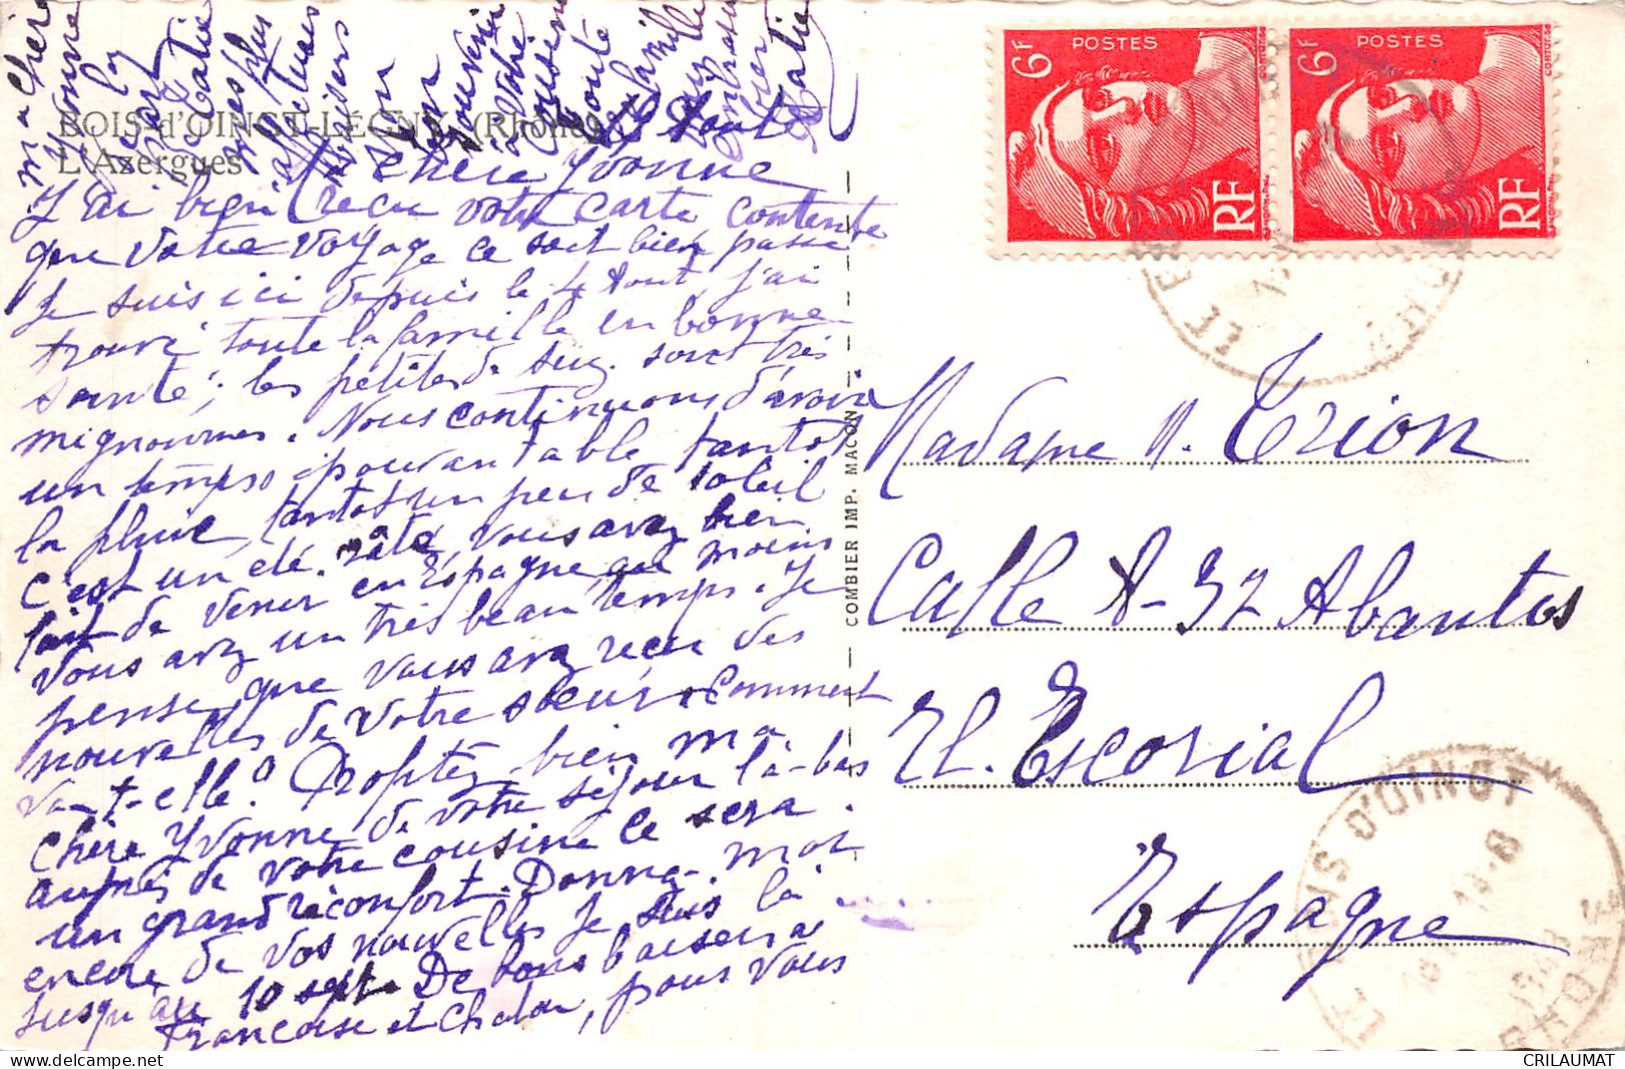 BOIS-d'OINGT-LÉGNY (Rhône)
L'Azergues
Août
Chère Yvonne
J'ai bien reçu votre carte contente
que votre voyage ce soit bien passé
Je suis ici depuis le 4 Aout, j'ai
trouvé toute la famille en bonne
santé; les petites de Suz. sont très
mignonnes. Nous continuons d'avoir
un temps épouvantable tantot
la pluie, tantot un peu de soleil
c'est un été raté, vous avez bien
fait de venir en Espagne au moins
vous avez un très beau temps. Je
pense que vous avez reçu des
nouvelles de votre sœur. Comment
va-t-elle? Profitez bien ma
chère Yvonne de votre séjour là-bas
auprès de votre cousine ce sera
un grand réconfort. Donne-moi
encore de vos nouvelles je suis là
jusqu'au 10 sept. De bons baisers de
Françoise et Chalou, pour vous
ma Chère
Yvonne
de Katie
mes plus
affectueux
baisers
Mon
bon
souvenir
à votre
cousine
toute
la famille
POSTES
6F
RF
POSTES
6F
RF
COMBIER IMP. MACON
Madame M. Trion
Calle A-32 Abantos
El. Escorial
Espagne
LE BOIS D'OINGT
RHONE
CRILAUMAT